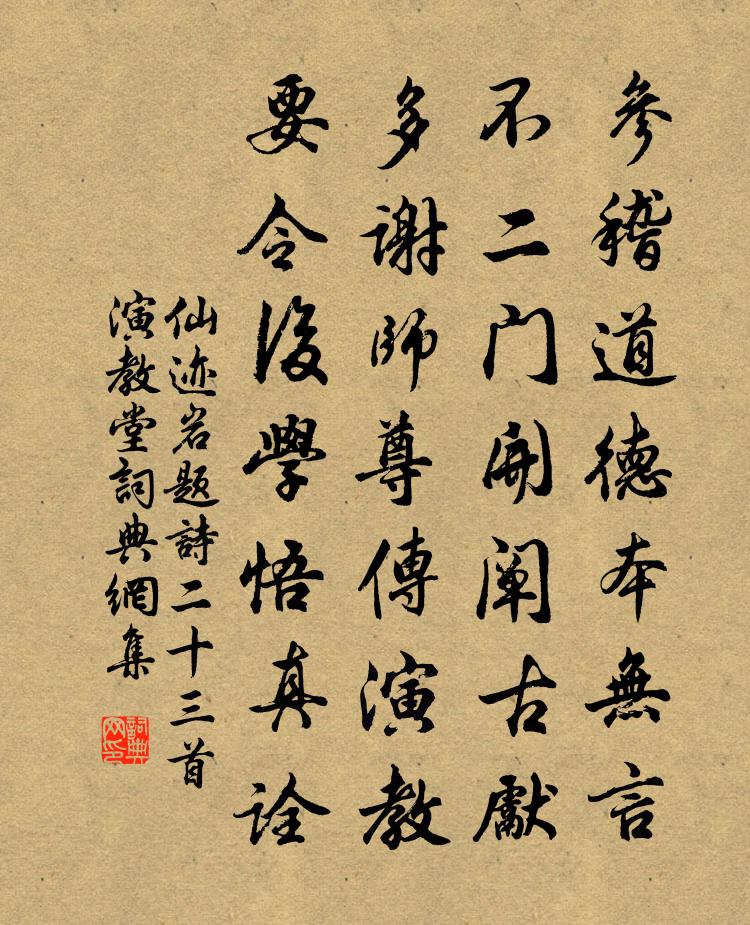 參稽道德本無言
不二门開阐古獻
多謝師尊傳演教
要令後學悟真詮
仙迹岩题詩二十三首
演教堂詞典網集
詞典網印